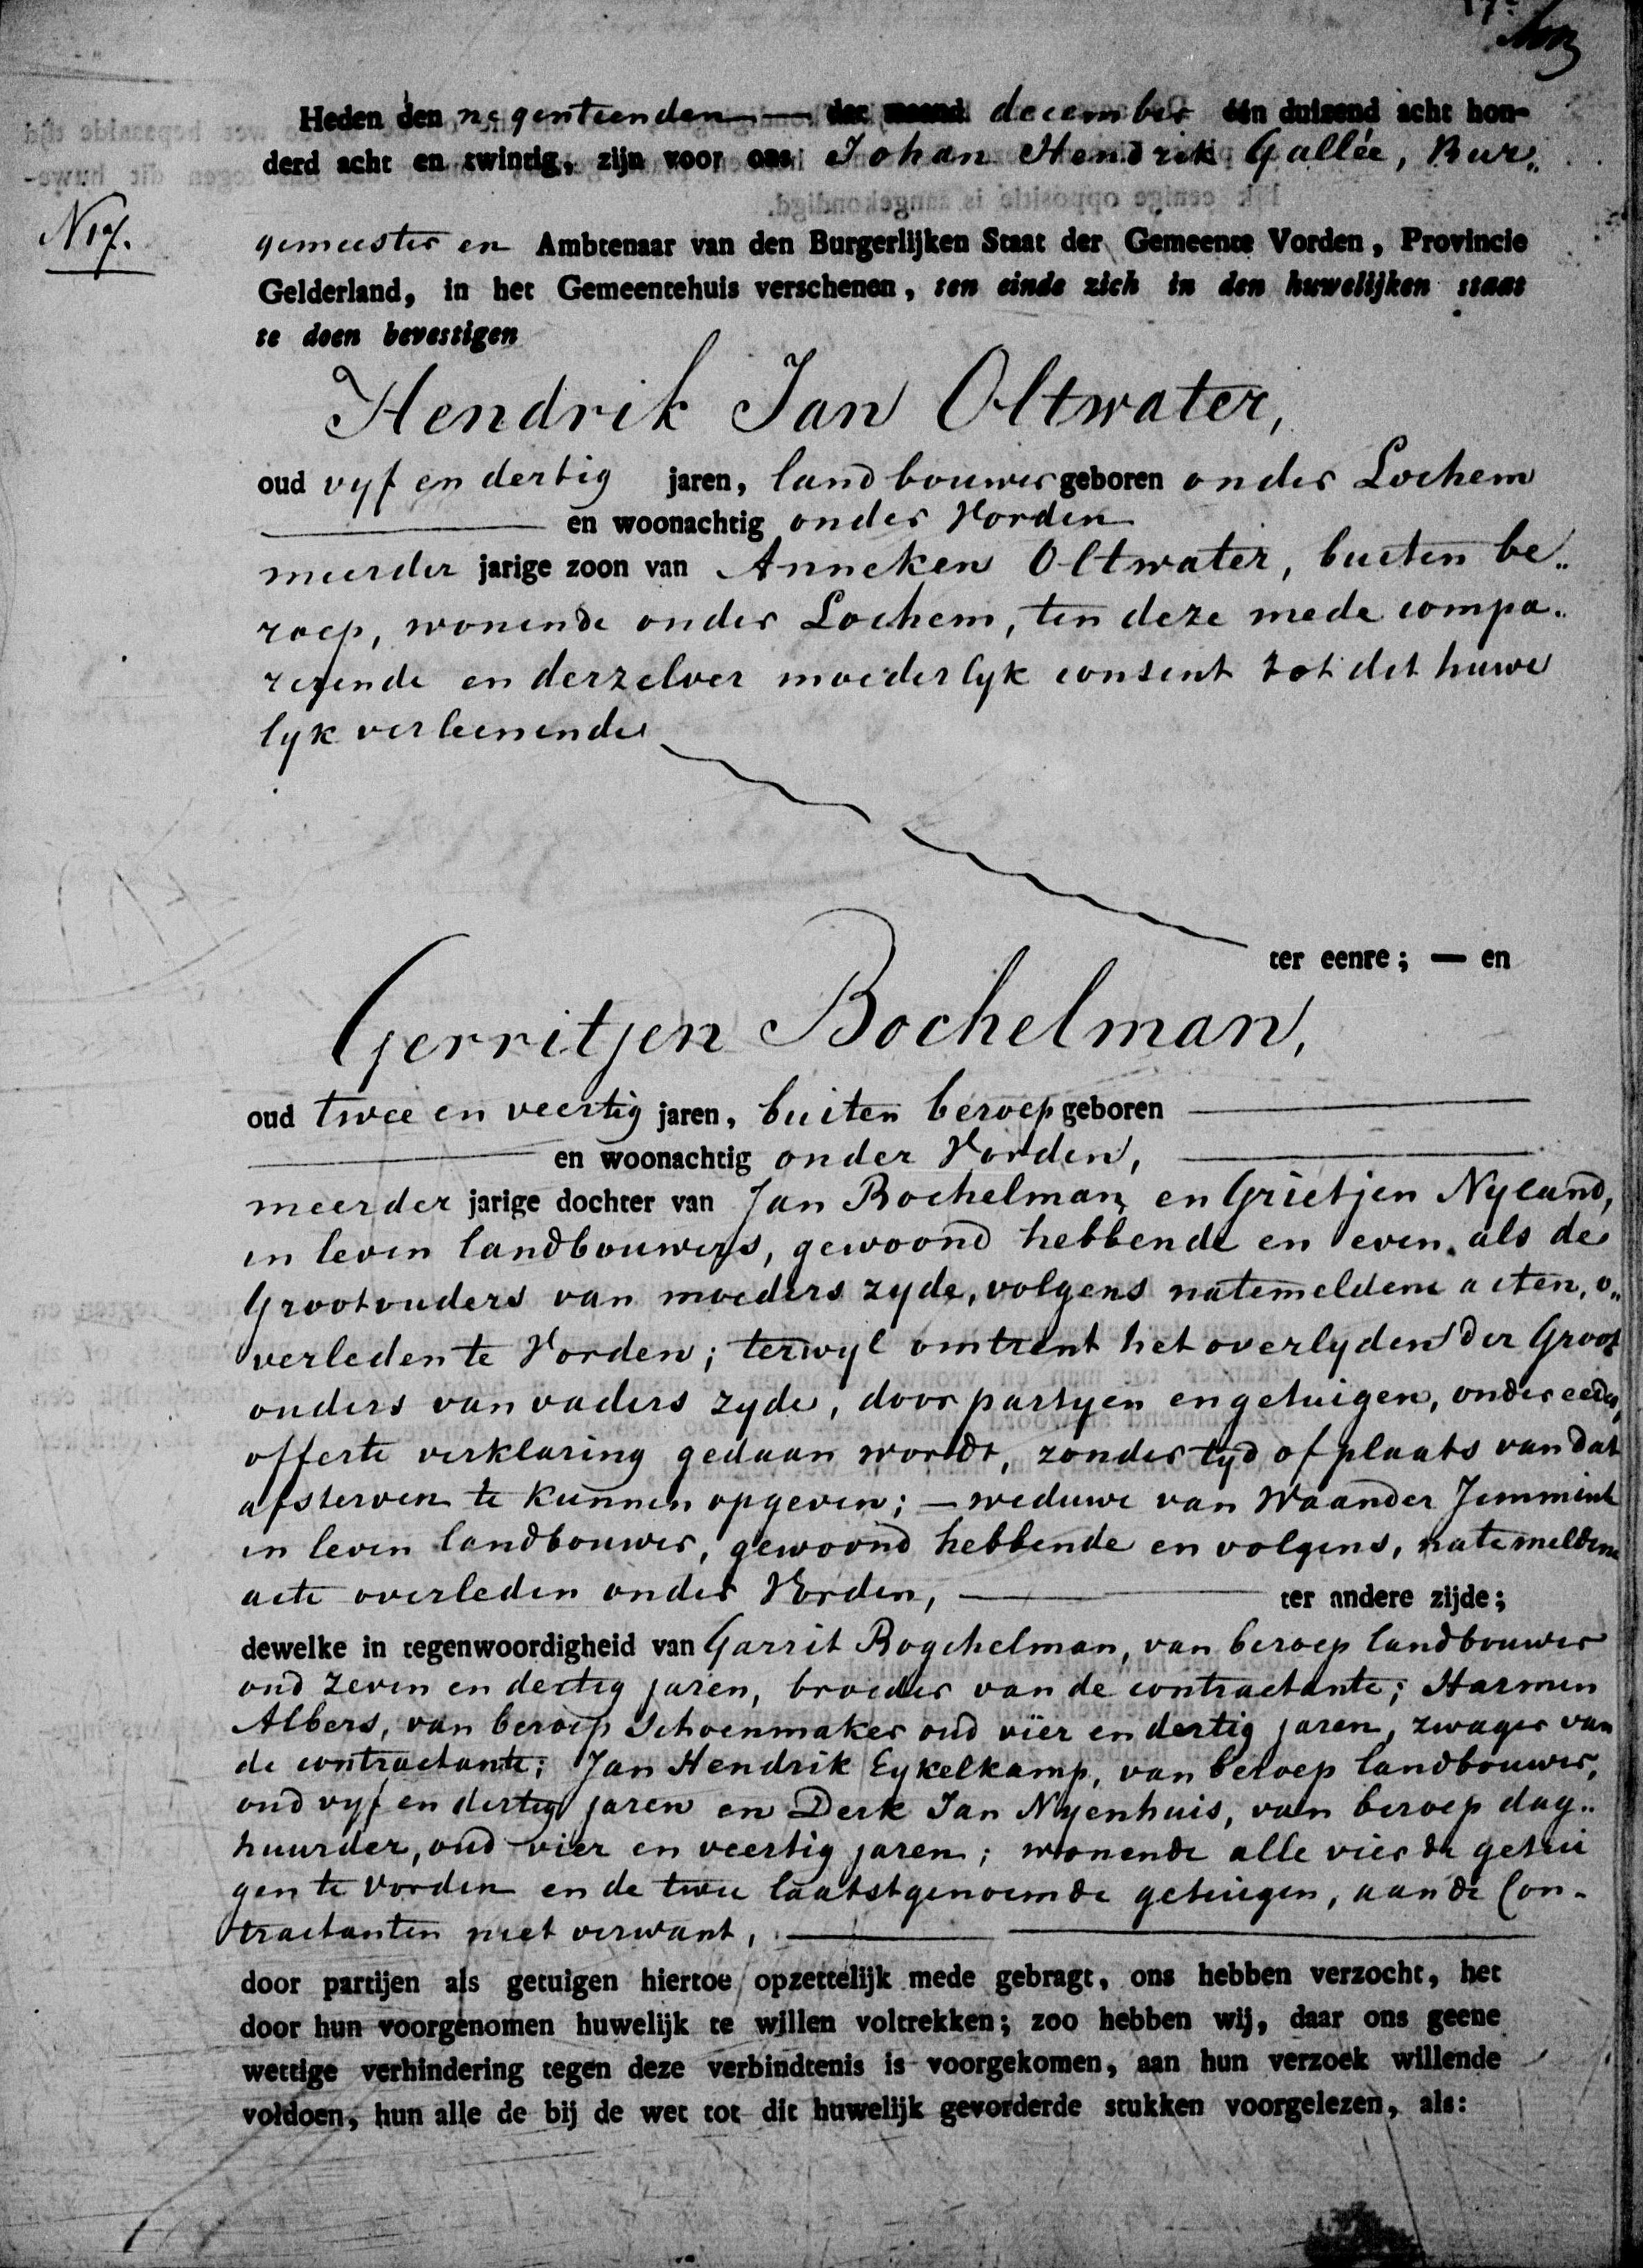 17e
Heden den negentienden — der maand december één duizend acht hon-
derd acht en twintig, zijn voor ons Johan Hendrik Gallée, Bur„
N17.
gemeester en Ambtenaar van den Burgerlijken Staat der Gemeente Vorden, Provincie
Gelderland, in het Gemeentehuis verschenen, ten einde zich in den huwelijken staat
te doen bevestigen
Hendrik Jan Oltwater,
oud vyf en dertig jaren, landbouwer geboren onder Lochem
en woonachtig onder Vorden
meerder jarige zoon van Anneken Oltwater, buiten be„
roep, wonende onder Lochem, ten deze mede compa„
rerende en derzelver moederlyk consent tot dit huwe
lyk verleenende
ter eenre; — en
Gerritjen Bochelman,
oud twee en veertig jaren, buiten beroep geboren
en woonachtig onder Vorden,
meerder jarige dochter van Jan Bochelman en Grietjen Nyland,
in leven landbouwers, gewoond hebbende en even als de
Grootouders van moeders zyde, volgens natemeldene acten, o„
verleden te Vorden; terwyl omtrent het overlyden der Groot
ouders van vaders zyde, door partyen en getuigen, onder eede,
offerte verklaring gedaan wordt, zonder tyd of plaats van dat
afsterven te kunnen opgeven; — weduwe van Waander Jemmink
in leven landbouwer, gewoond hebbende en volgens, natemeldene
acte overleden onder Vorden, — ter andere zijde;
dewelke in tegenwoordigheid van Garrit Bogchelman, van beroep landbouwer
oud zeven en dertig jaren, broeder van de contractante; Harmen
Albers, van beroep Schoenmaker oud vier en dertig jaren, zwager van
de contractante; Jan Hendrik Eykelkamp, van beroep landbouwer,
oud vyf en dertig jaren en Derk Jan Nyenhuis, van beroep dag„
huurder, oud vier en veertig jaren; wonende alle vier de getui
gen te Vorden en de twee laatstgenoemde getuigen, aan de Con-
tractanten niet verwant,
door partijen als getuigen hiertoe opzettelijk mede gebragt, ons hebben verzocht, het
door hun voorgenomen huwelijk te willen voltrekken; zoo hebben wij, daar ons geene
wettige verhindering tegen deze verbindtenis is voorgekomen, aan hun verzoek willende
voldoen, hun alle de bij de wet tot dit huwelijk gevorderde stukken voorgelezen, als: